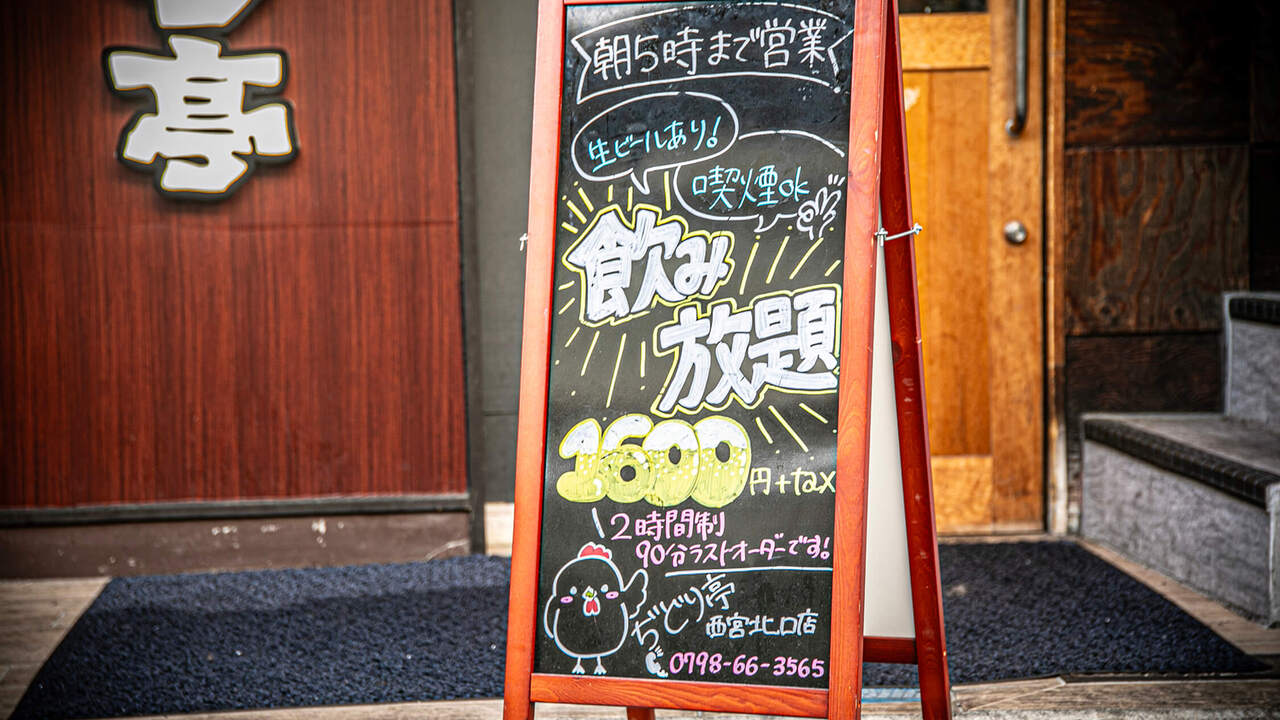 亭
朝5時まで営業
生ビールあり!
喫煙ok
飲み
放題
1600円+tax
2時間制
90分ラストオーダーです!
ぢどり亭
西宮北口店
0798-66-3565